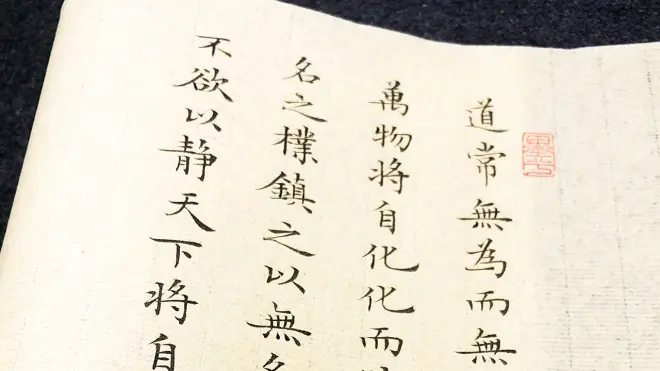 道常無為而無
萬物将自化化而
名之樸鎮之以無
不欲以静天下将自